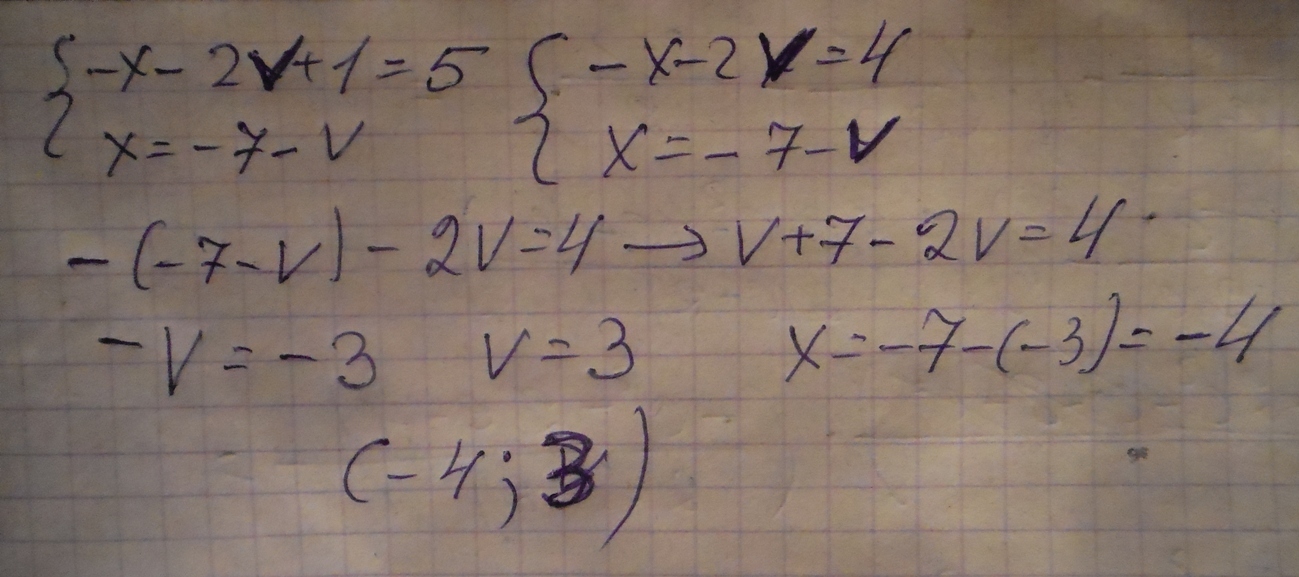 { -x - 2v + 1 = 5 { -x - 2v = 4
x = -7 - v x = -7 - v
-(-7 - v) - 2v = 4 → v + 7 - 2v = 4
-v = -3 v = 3 x = -7 - (-3) = -4
(-4; 3)